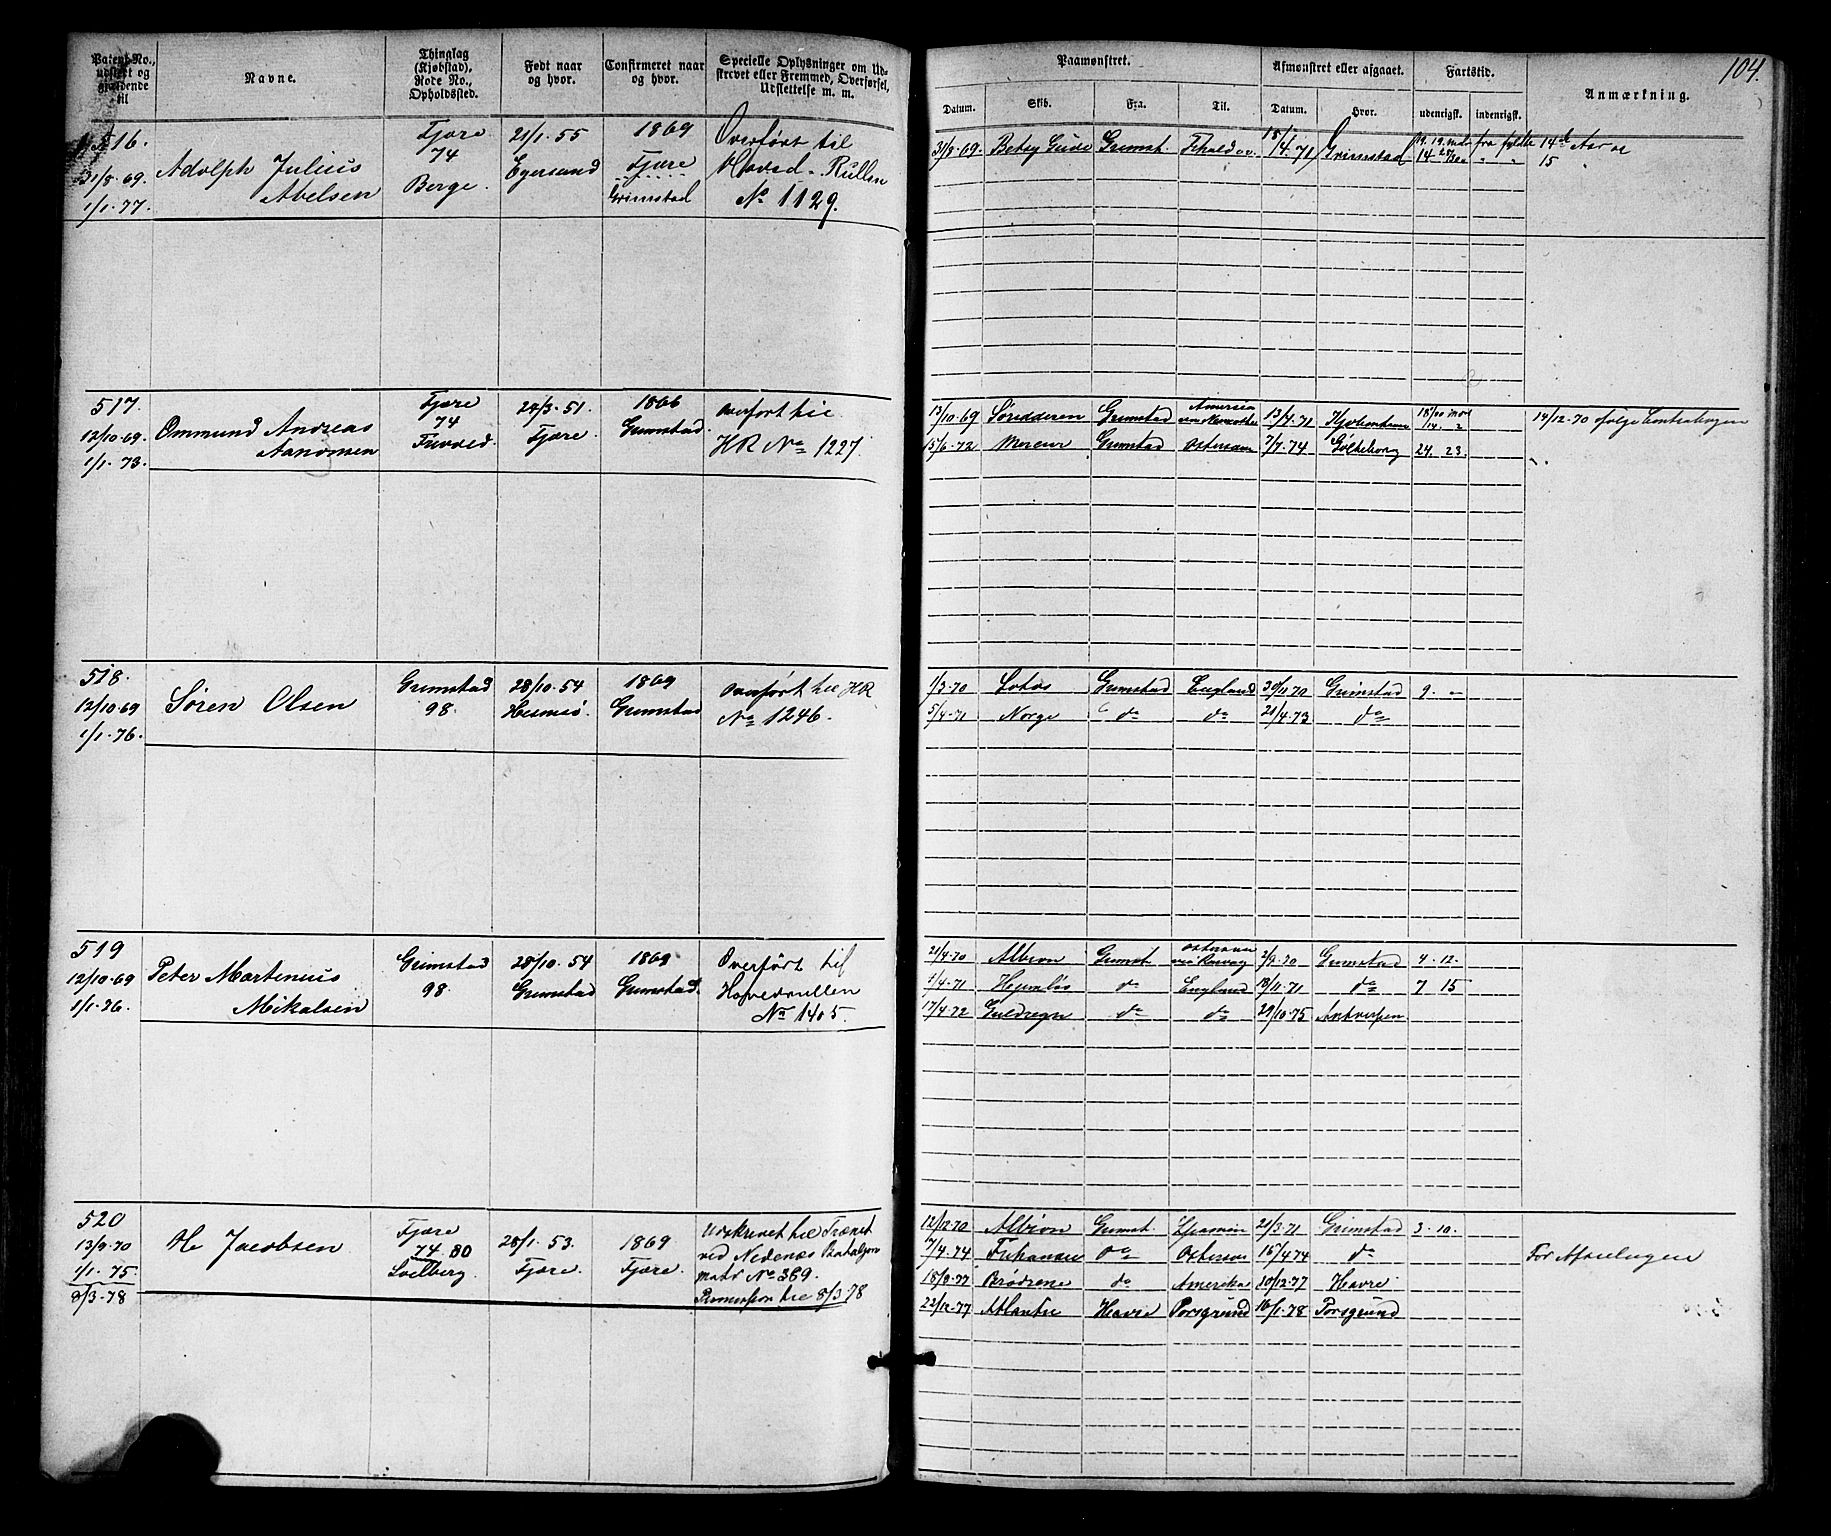 104.
Patent-No., udstedt og gjældende til
Navne.
Thinglag (Kjøbstad), Rode No., Opholdssted.
Født naar og hvor.
Confirmeret naar og hvor.
Specielle Oplysninger om Udskrevet eller Fremmed, Overførsel, Udslettelse m. m.
Paamønstret.
Afmønstret eller afgaaet.
Fartstid.
Anmærkning.
Datum. Skib. Fra. Til. Datum. Hvor. udenrigsk. indenrigsk.
516. 31/8.69. 1/1.77.
Adolph Julius Abelsen
Fjære 74 Berge.
21/1.55 Egersund
1869 Fjære Grimstad
Overført til Hoved-Rullen No 1129.
31/8.69. Betsy Gude Grimst. 18/4.71 Grimstad
517. 12/10.69. 1/1.73.
Ommund Andreas Aanonsen
Fjære 74
24/3.51. Fjære.
1866 Grimstad.
Overført til HR No 1227.
13/10.69 Grimstad Amerika 13/4.71
15/6.72 Mercur Grimstad Østersøen 7/7.74 Gøtheborg 24. 23.
14/12.70
518. 12/10.69 1/1.76.
Søren Olsen
Grimstad 98.
28/10.54 Hesnesø.
1869 Grimstad
Overført til HR No 1246.
1/3.70 Grimstad England 30/11.70 Grimstad 9. "
5/4.71 Norge do do 21/4.73 do
519 12/10.69 1/1.76.
Peter Martenius Mikalsen
Grimstad 98.
28/10.54 Grimstad
1869 Grimstad.
Overført til Hovedrullen No 1405.
21/4.70 Albion Grimst. 2/9.70 Grimstad 4.12.
1/4.71 do England 18/11.71 do 7 15
17/4.72 Guldregn do do 29/10.75 Antverpen
520 13/9.70 1/1.75 8/3.78
Jacobsen
Fjære 74.80
28/1.53. Fjære.
1869 Fjære.
Udskrevet til Trænet ved Nedenæs Bataljon Matr No 369. Permission til 8/3 78
12/12.70 Albion Grimst. 21/3.71 Grimstad 3.10.
7/4.74 do Østersøen 15/4 74 do
18/9.77 Brødrene do Amerika 10/12.77 Havre
22/12.77 Atlantic Havre Porsgrund 16/1.78 Porsgrund
For Aftælingen